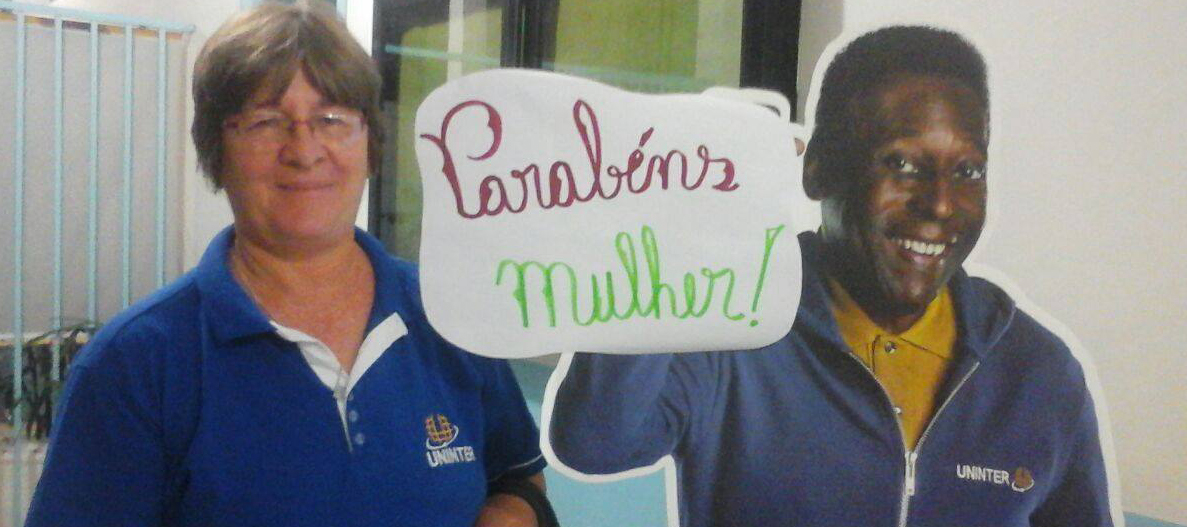 Parabéns
mulher!
UNINTER
UNINTER